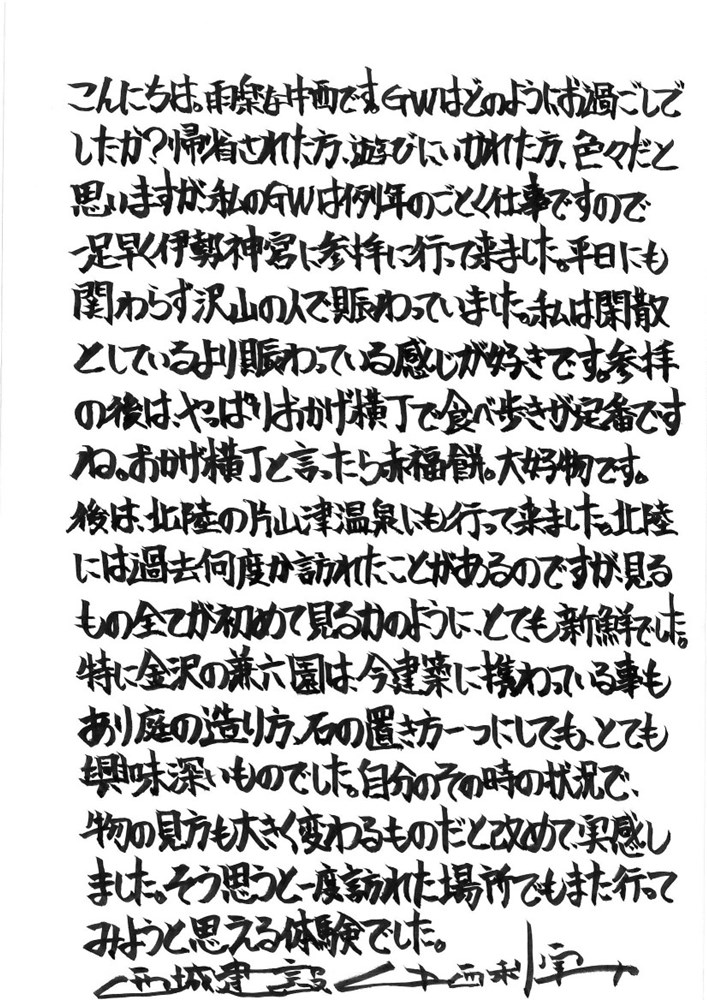 こんにちは。雨楽な中西です。GWはどのようにお過ごしで
したか？帰省された方、遊びにいかれた方、色々だと
思いますが、私のGWは例年のごとく仕事ですので
一足早く伊勢神宮に参拝に行って来ました。平日にも
関わらず沢山の人で賑わっていました。私は閑散
としているより賑わっている感じが好きです。参拝
の後は、やっぱりおかげ横丁で食べ歩きが定番です
ね。おかげ横丁と言ったら赤福餅。大好物です。
後は、北陸の片山津温泉にも行って来ました。北陸
には過去何度か訪れたことがあるのですが、見る
もの全てが初めて見るかのように、とても新鮮でした。
特に金沢の兼六園は、今建築に携わっている事も
あり庭の造り方、石の置き方一つにしても、とても
興味深いものでした。自分のその時の状況で、
物の見方も大きく変わるものだと改めて実感し
ました。そう思うと一度訪れた場所でもまた行って
みようと思える体験でした。
西城建設 中西利